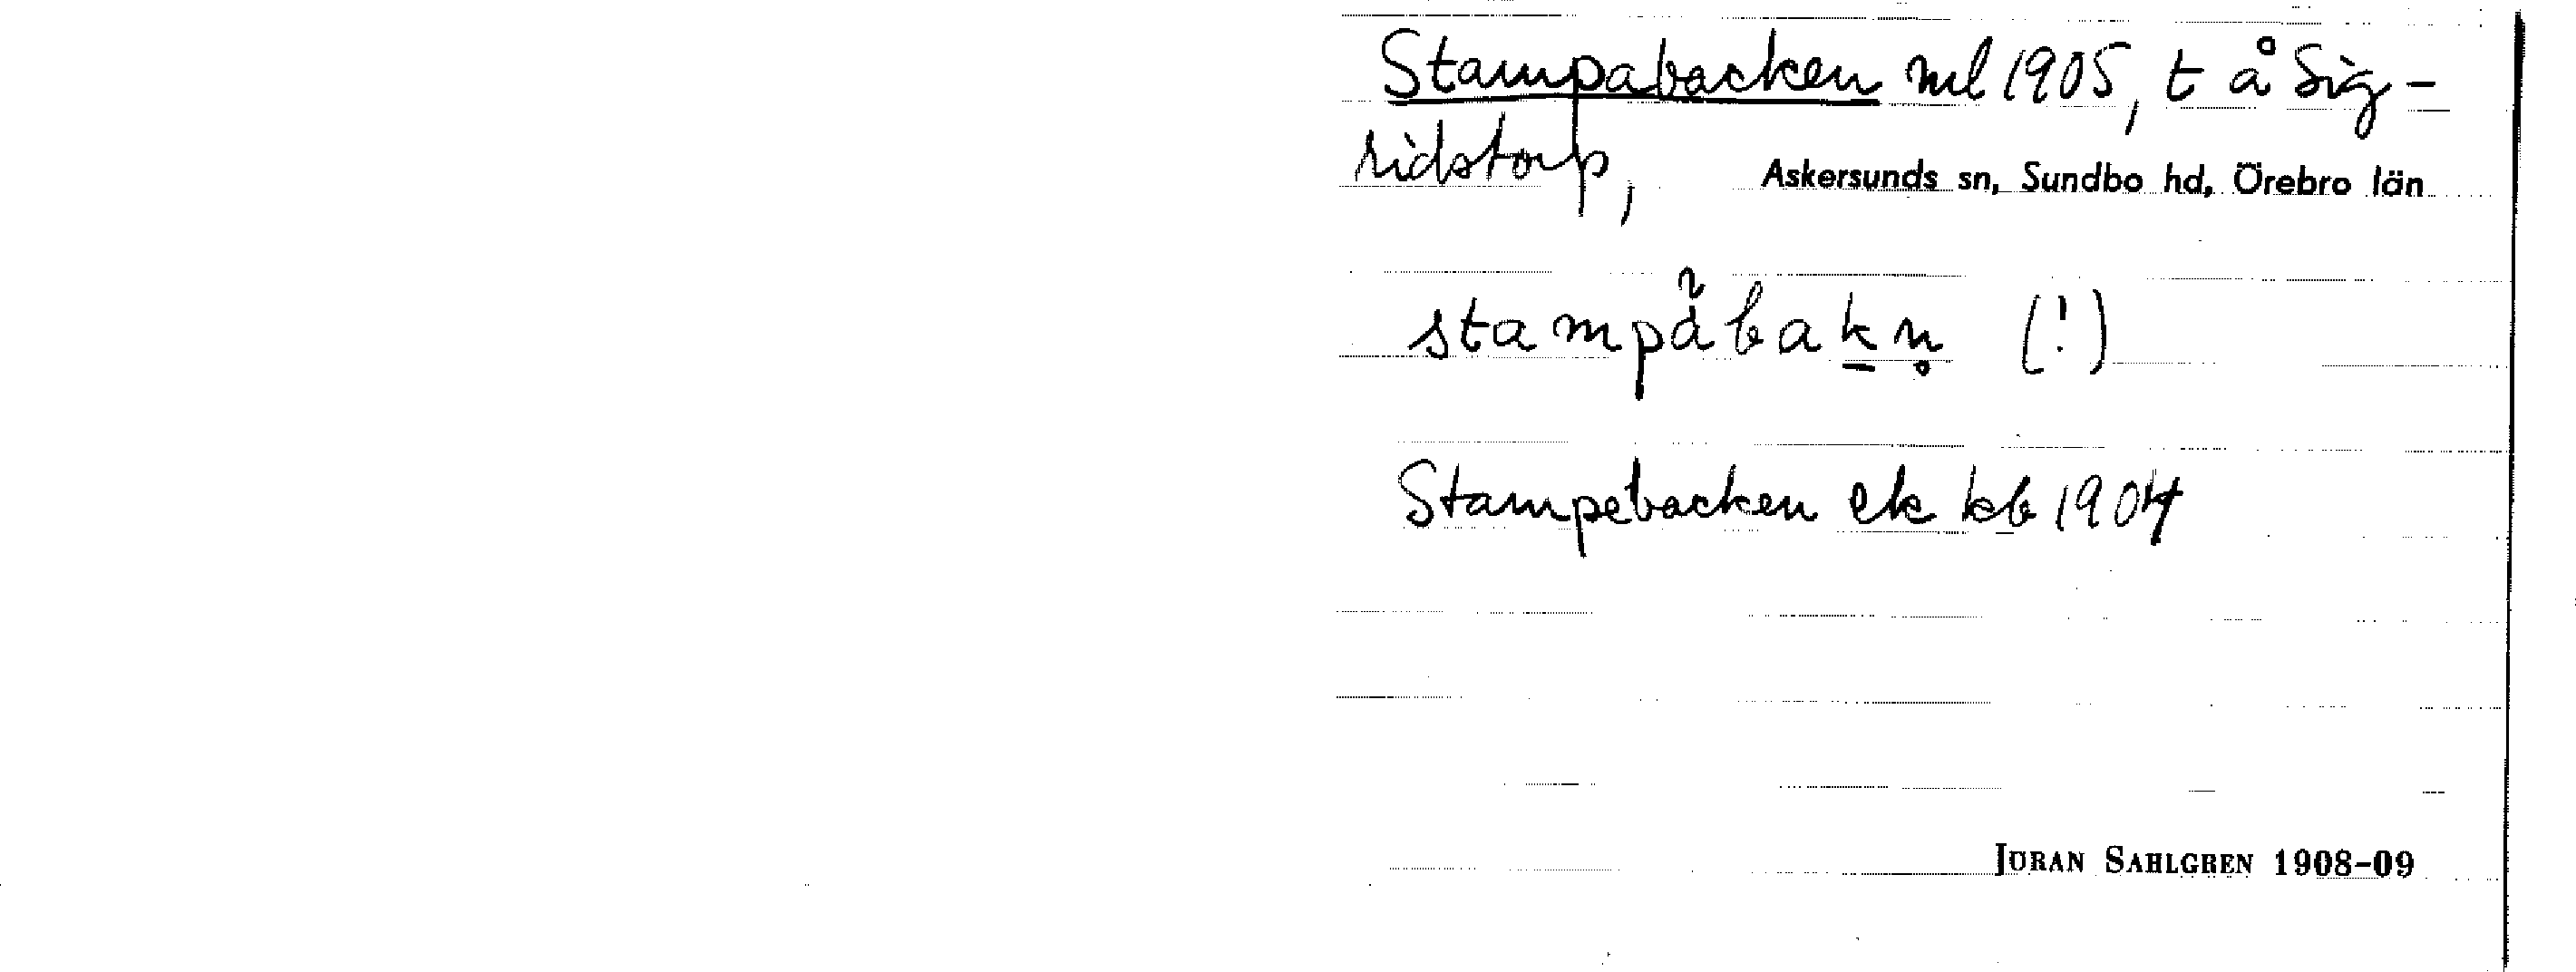 Stampabacken ml 1905, t å Sig-
ridstorp, Askersunds sn, Sundbo hd, Örebro län
stampàbak̲n̥ (!)
Stampebacken ek kb 1904
JÖRAN SAHLGREN 1908-09